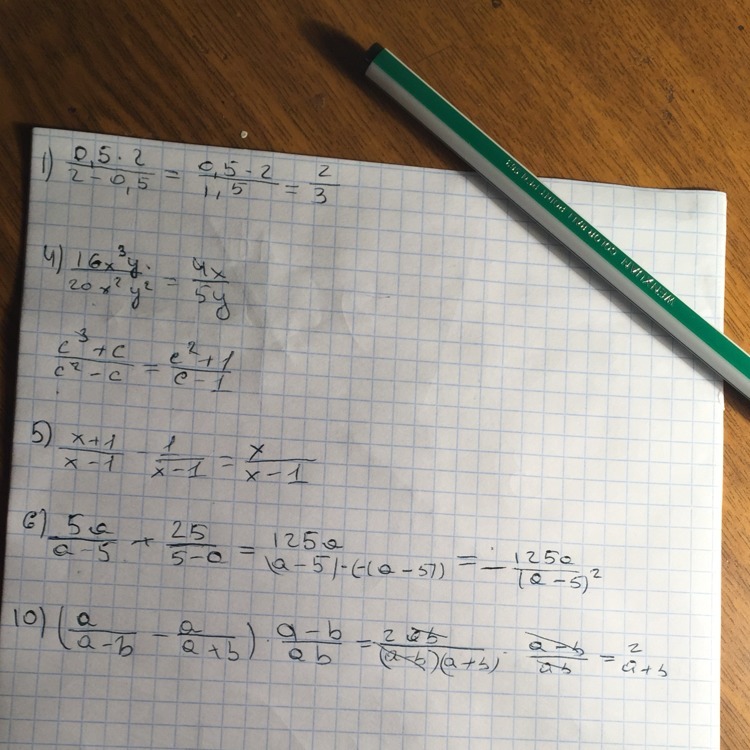 1) (0,5 · 2)/(2 - 0,5) = (0,5 - 2)/(1,5) = 2/3
4) (16x³y)/(20x²y²) = (4x)/(5y)
(c³+c)/(c²-c) = (c²+1)/(c-1)
5) (x+1)/(x-1) - 1/(x-1) = x/(x-1)
6) (5a)/(a-5) + 25/(5-a) = (125a)/((a-5)·(-(a-5))) = -(125a)/((a-5)²)
10) (a/(a-b) - a/(a+b)) · (a-b)/(ab) = (2ab)/((a-b)(a+b)) · (a-b)/(ab) = 2/(a+b)